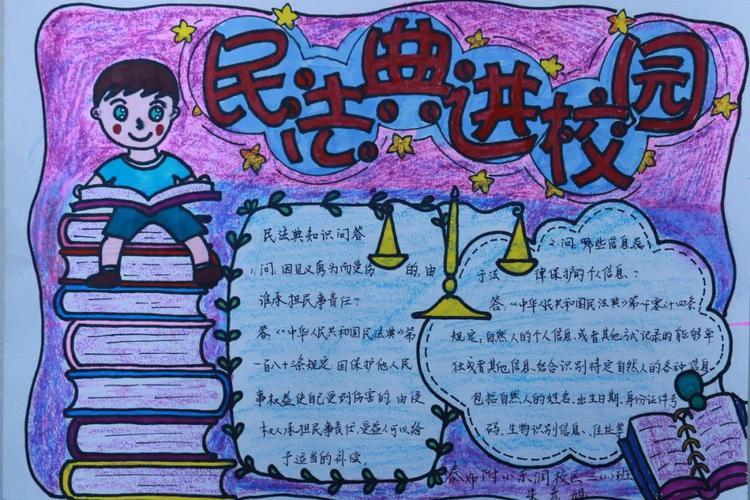 民法典进校园
民法典知识问答
1.问:因见义勇为而受伤的,由
谁承担民事责任?
答:《中华人民共和国民法典》第
一百八十三条规定 因保护他人民
事权益使自己受到伤害的,由侵
权人承担民事责任,受益人可以给
予适当的补偿
2.问:哪些信息属
于法律保护的个人信息?
答:《中华人民共和国民法典》第一千零三十四条
规定:自然人的个人信息,或者其他方式记录的能够单
独或者其他信息结合识别特定自然人的各种信息
包括自然人的姓名、出生日期、身份证件号
码、生物识别信息、住址等
泰师附小东润校区三(1)班